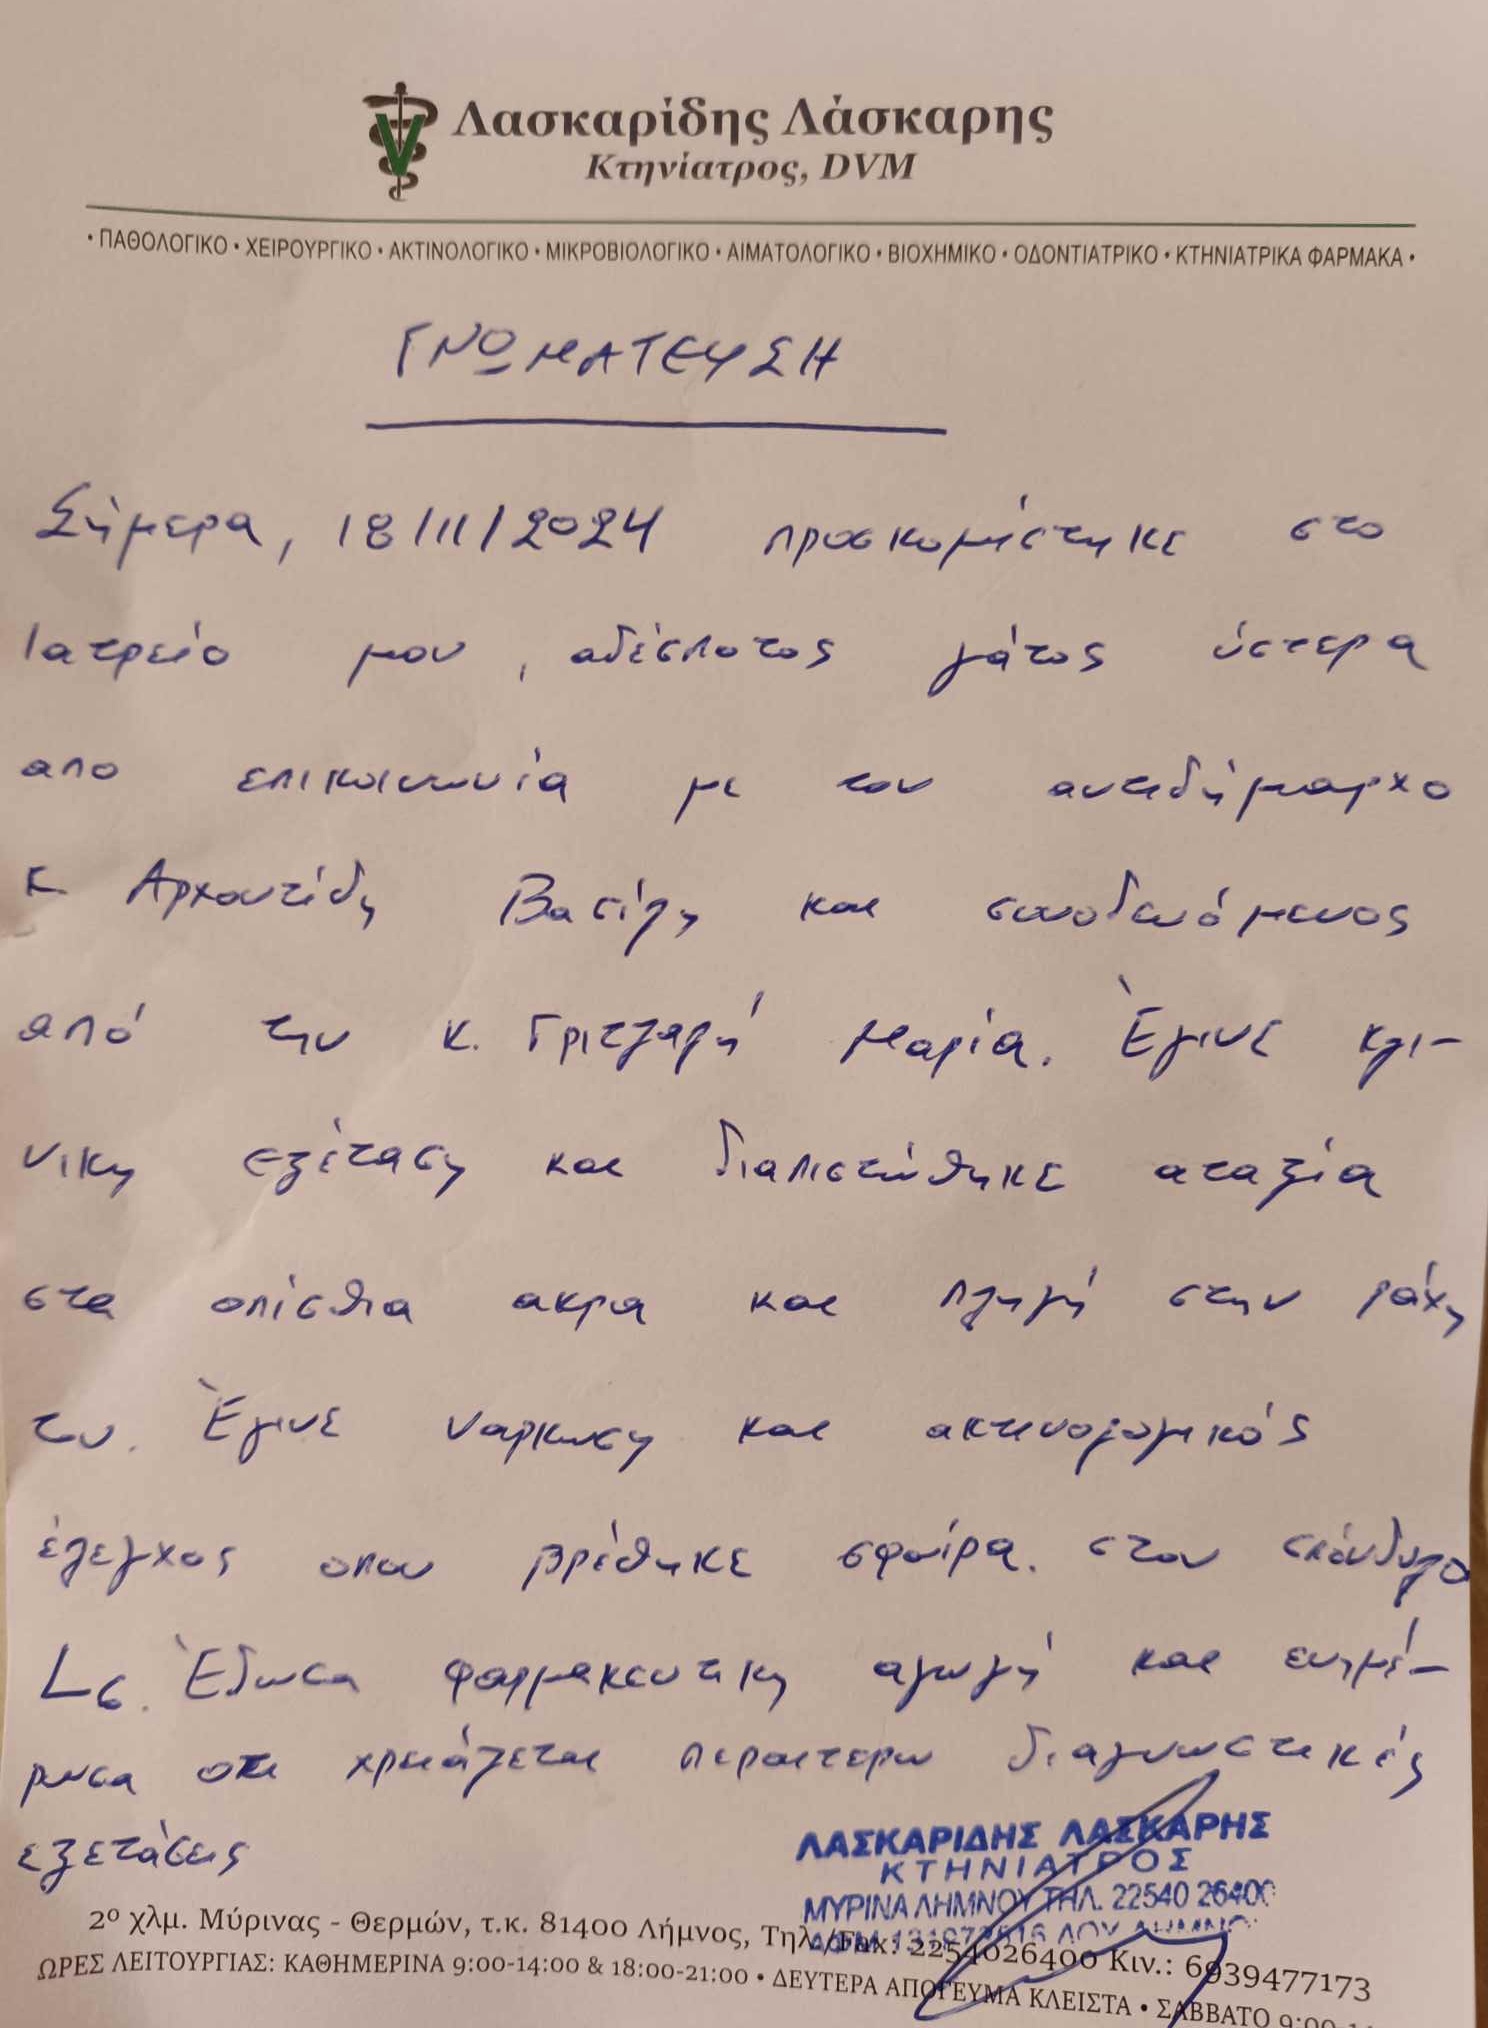 Λασκαρίδης Λάσκαρης
Κτηνίατρος, DVM
• ΠΑΘΟΛΟΓΙΚΟ • ΧΕΙΡΟΥΡΓΙΚΟ • ΑΚΤΙΝΟΛΟΓΙΚΟ • ΜΙΚΡΟΒΙΟΛΟΓΙΚΟ • ΑΙΜΑΤΟΛΟΓΙΚΟ • ΒΙΟΧΗΜΙΚΟ • ΟΔΟΝΤΙΑΤΡΙΚΟ • ΚΤΗΝΙΑΤΡΙΚΑ ΦΑΡΜΑΚΑ •
ΓΝΩΜΑΤΕΥΣΗ
Σήμερα, 18/11/2024 προσκομήστηκε στο
Ιατρείο μου, αδέσποτος γάτος ύστερα
απο επικοινωνία με τον αντιδήμαρχο
κ Αρχοντίδη Βασίλη και συνοδευόμενος
από την κ. Γριτζαλή Μαρία. Έγινε κλι-
νικη εξέταση και διαπιστώθηκε αταξία
στα οπίσθια ακρα και πληγή στην ράχη
του. Έγινε ναρκωση και ακτινολογικός
έλεγχος οπου βρέθηκε σφαίρα. στον σπόνδυλο
L6. Έδωσα φαρμακευτικη αγωγή και ενημέ-
ρωσα οτι χρειάζεται περαιτερω διαγνωστικές
εξετάσεις
ΛΑΣΚΑΡΙΔΗΣ ΛΑΣΚΑΡΗΣ
ΚΤΗΝΙΑΤΡΟΣ
ΜΥΡΙΝΑ ΛΗΜΝΟΥ ΤΗΛ. 22540 26400
2ο χλμ. Μύρινας - Θερμών, τ.κ. 81400 Λήμνος, Τηλ./Fax: 2254026400 Κιν.: 6939477173
ΩΡΕΣ ΛΕΙΤΟΥΡΓΙΑΣ: ΚΑΘΗΜΕΡΙΝΑ 9:00-14:00 & 18:00-21:00 • ΔΕΥΤΕΡΑ ΑΠΟΓΕΥΜΑ ΚΛΕΙΣΤΑ • ΣΑΒΒΑΤΟ